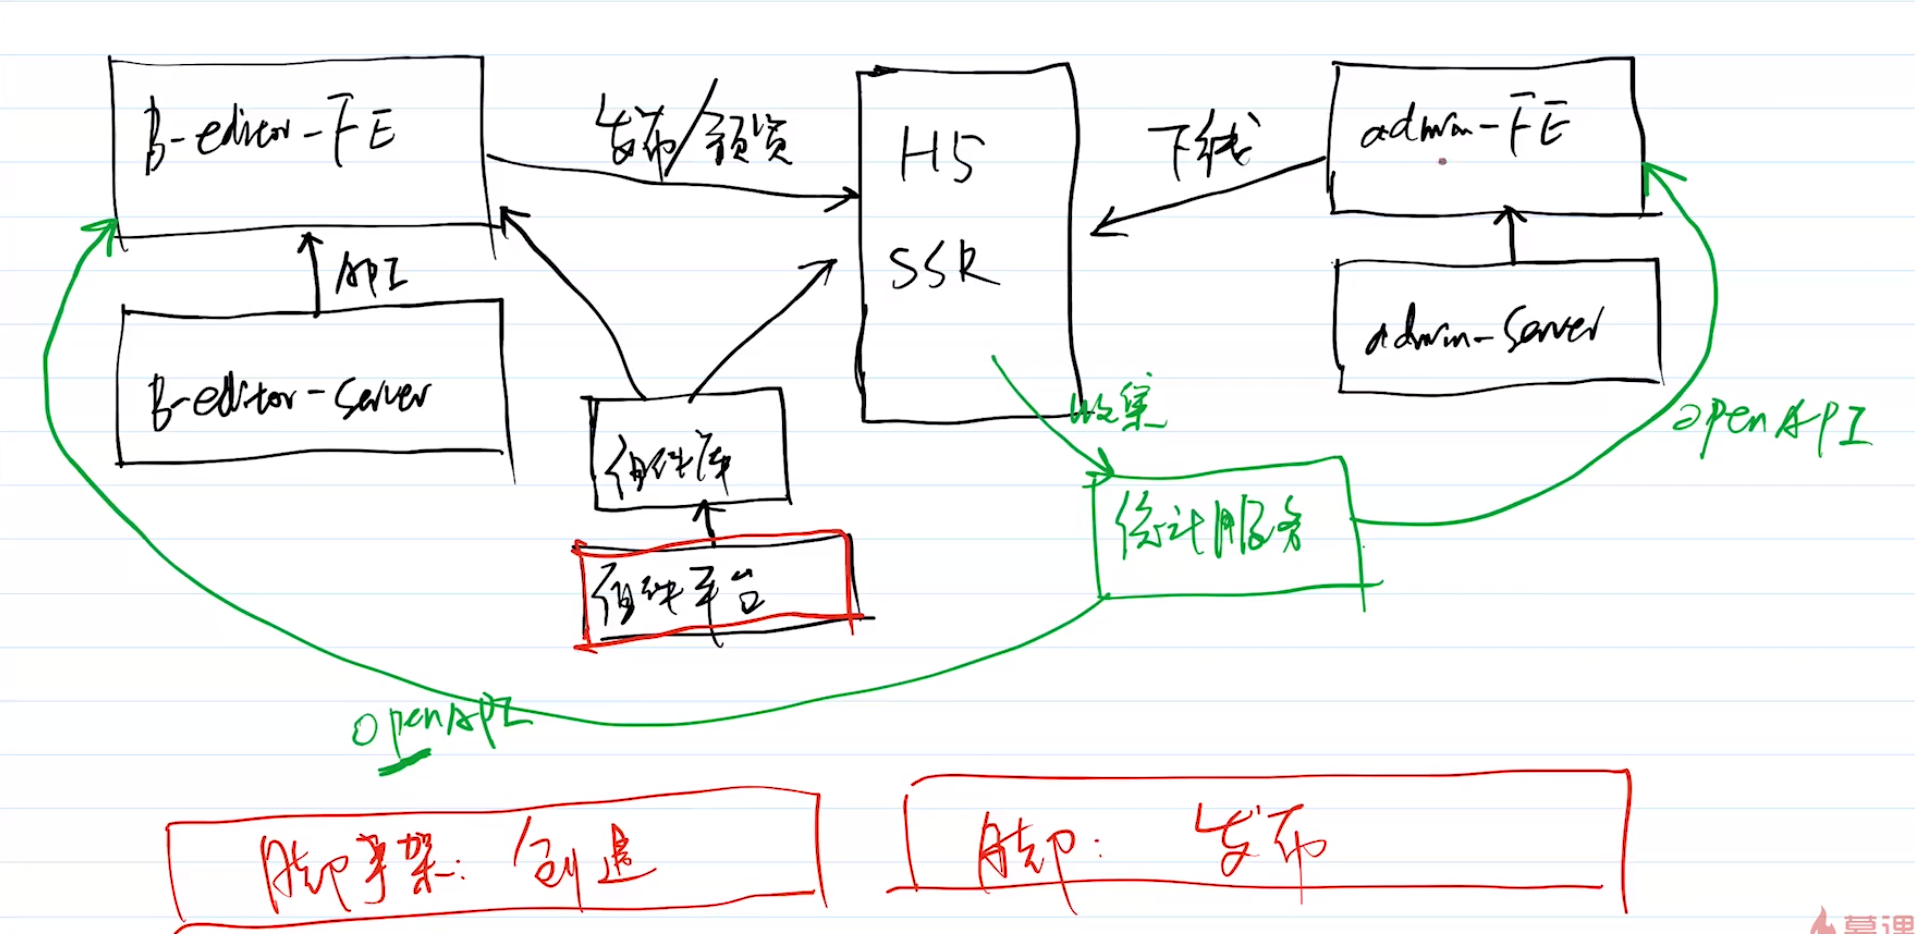 B-editor-FE
发布/预览
H5
SSR
下线
admin-FE
API
B-editor-server
admin-server
组件库
组件平台
收集
统计服务
openAPI
openAPI
脚手架：创建
脚： 发布
慕课